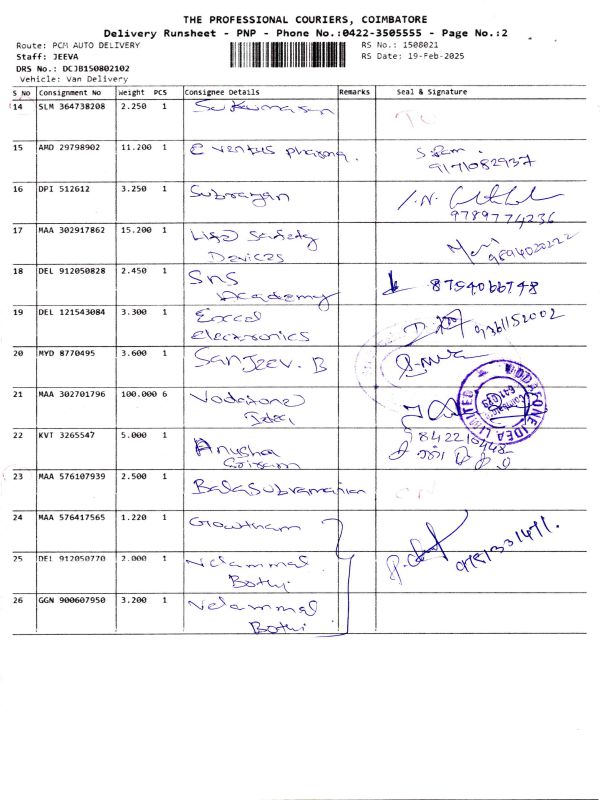 THE PROFESSIONAL COURIERS, COIMBATORE
Delivery Runsheet - PNP - Phone No.:0422-3505555 - Page No.:2
Route: PCM AUTO DELIVERY
RS No.: 1508021
Staff: JEEVA
RS Date: 19-Feb-2025
DRS No.: DCJB150802102
Vehicle: Van Delivery
S No Consignment No Weight PCS Consignee Details Remarks Seal & Signature
14 SLM 364738208 2.250 1 Sukumaran
15 AMD 29798902 11.200 1 C Ventus pharma. S. Ram.
9171082937
16 DPI 512612 3.250 1 Subrayan
9789774236
17 MAA 302917862 15.200 1 Safety
Devices
18 DEL 912050828 2.450 1 SNS 8754066748
Academy
19 DEL 121543084 3.300 1 Excel 9361152002
Electronics
20 MYD 8770495 3.600 1 SANJEEV. B
21 MAA 302701796 100.000 6 Vodafone
Idea
VODAFONE IDEA LIMITED
22 KVT 3265547 5.000 1 Anusha
Sriram
23 MAA 576107939 2.500 1 Balasubramanian
24 MAA 576417565 1.220 1 Gowtham
25 DEL 912050770 2.000 1 Velammal
Bothi
26 GGN 900607950 3.200 1 Velammal
Bothi